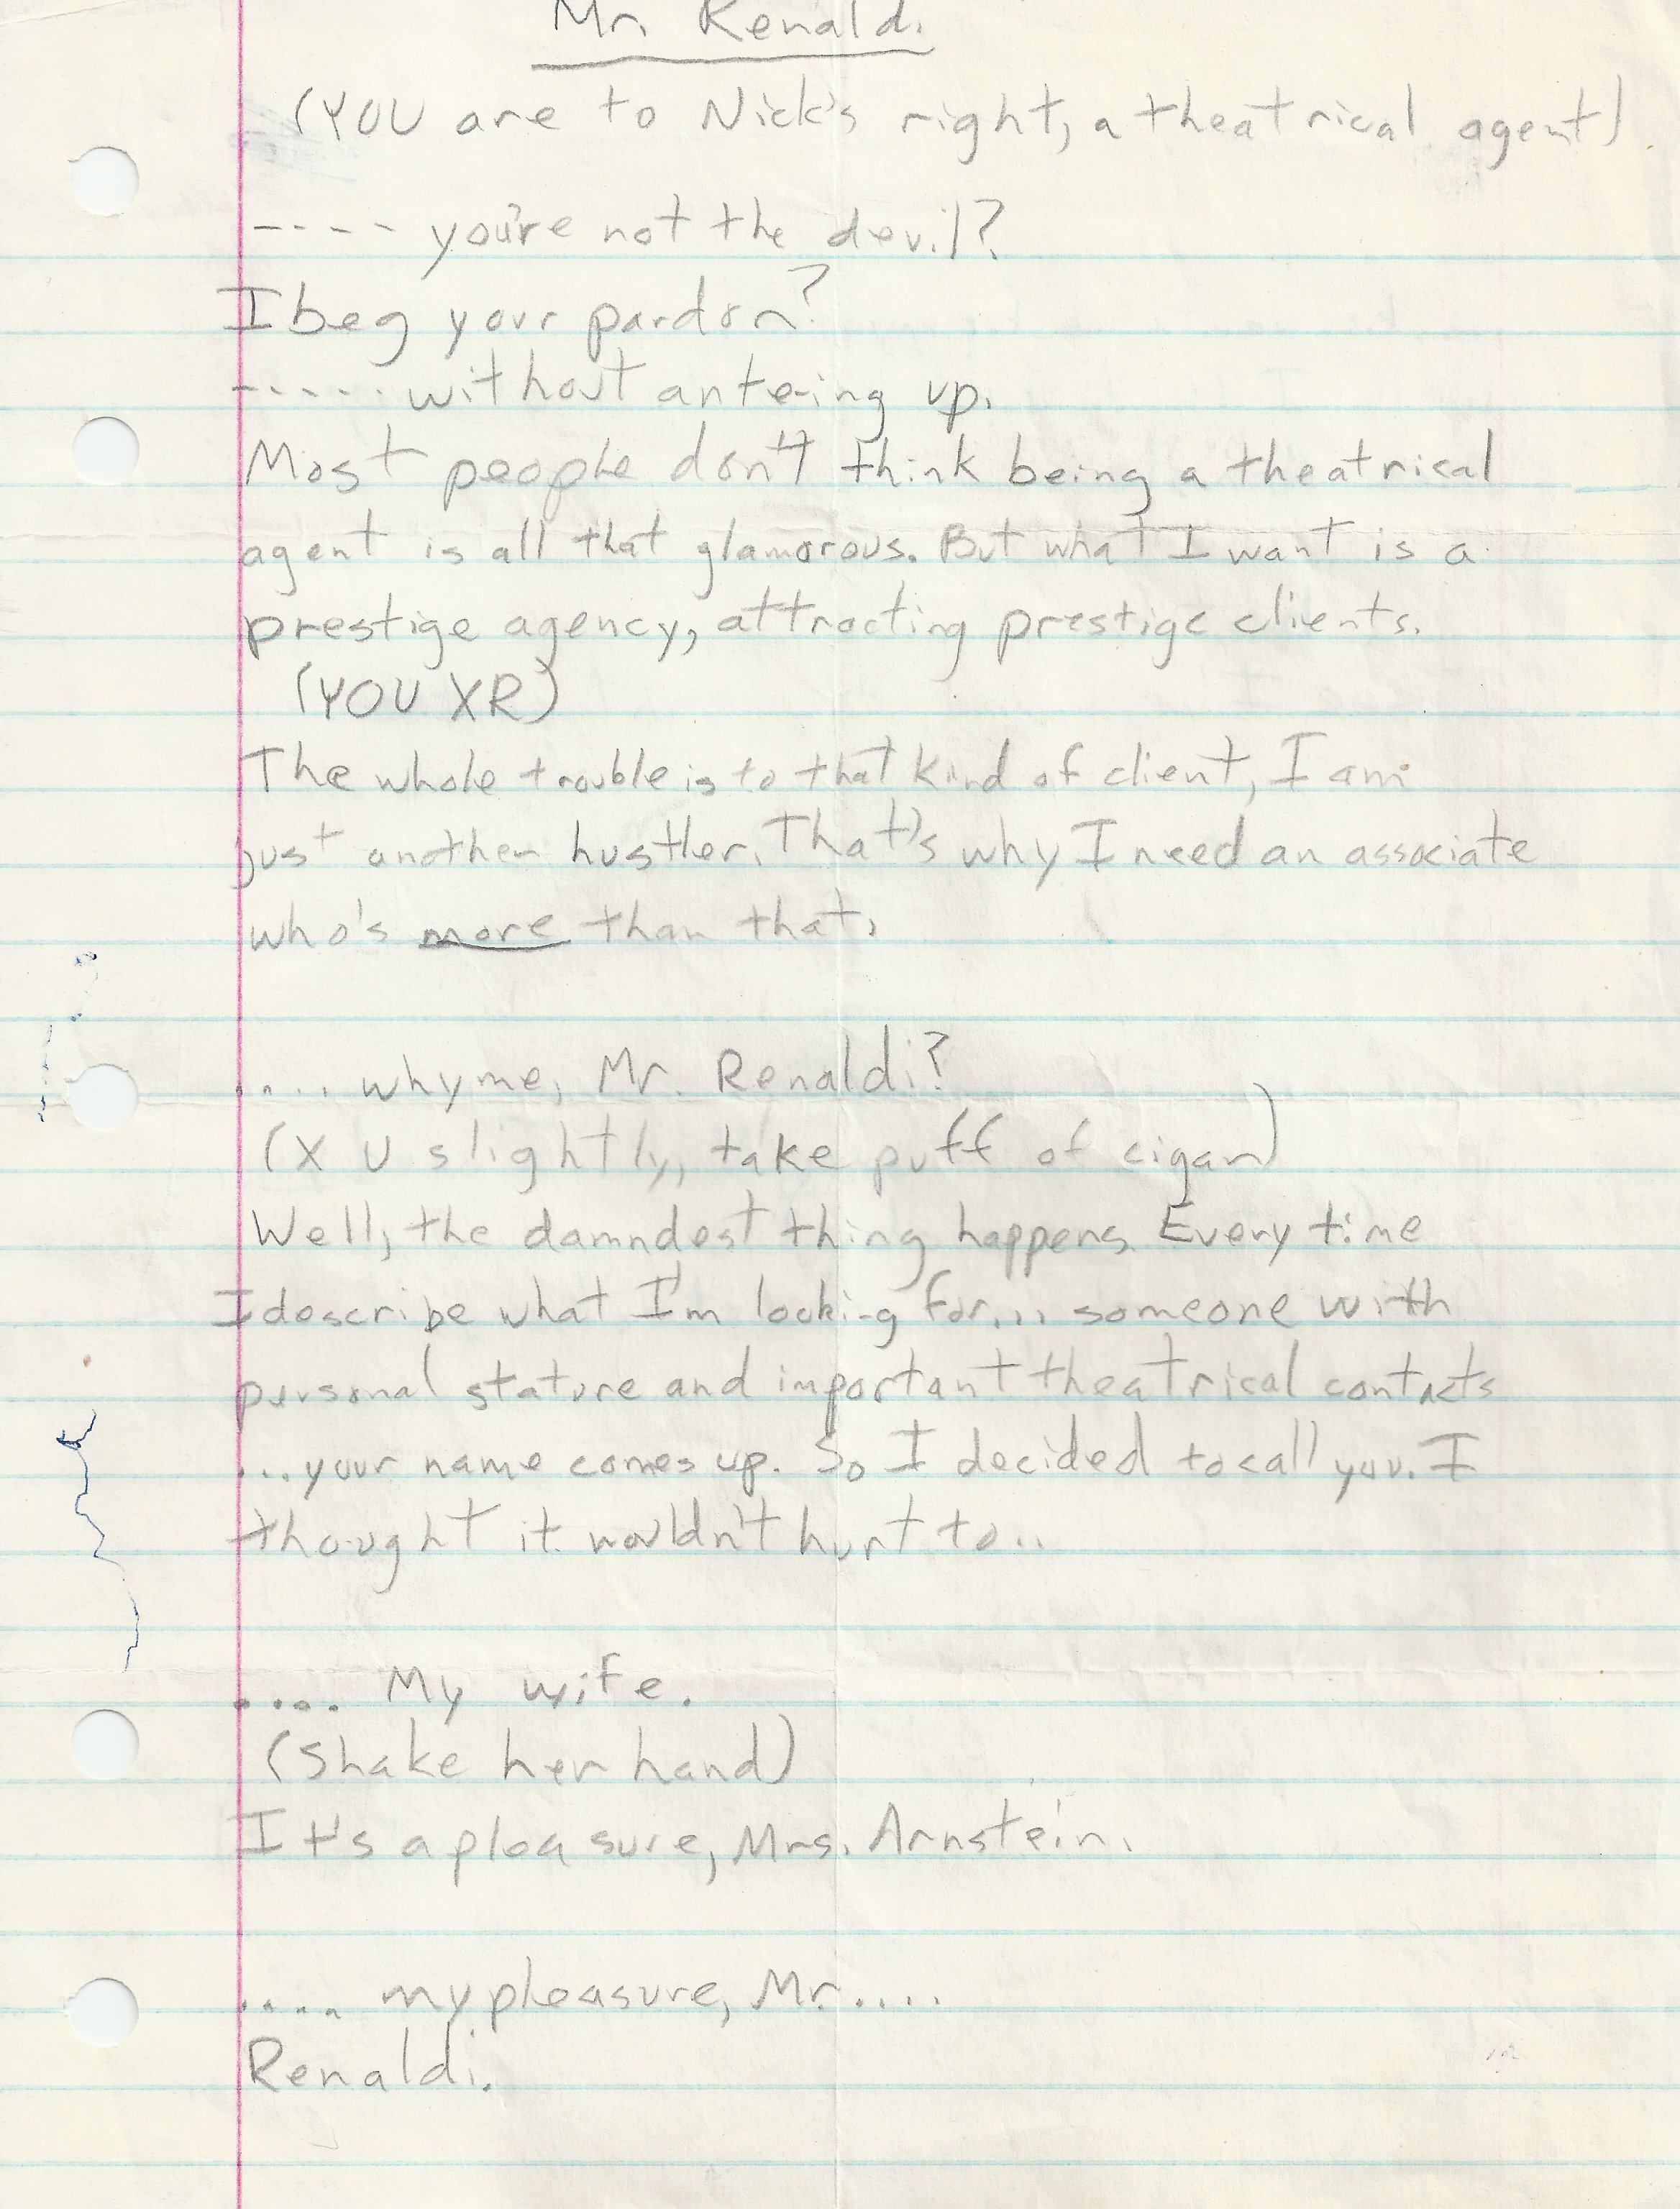 Mr. Renaldi
(YOU are to Nick's right, a theatrical agent)
---- you're not the devil?
I beg your pardon?
----- without ante-ing up.
Most people don't think being a theatrical
agent is all that glamorous. But what I want is a
prestige agency, attracting prestige clients.
(YOU XR)
The whole trouble is to that kind of client, I am
just another hustler. That's why I need an associate
who's more than that.
.... why me, Mr. Renaldi?
(X U slightly, take puff of cigar)
Well, the damndest thing happens. Every time
I describe what I'm looking for... someone with
personal stature and important theatrical contacts
...your name comes up. So I decided to call you. I
thought it wouldn't hurt to..
.... My wife.
(Shake her hand)
It's a pleasure, Mrs. Arnstein.
.... my pleasure, Mr....
Renaldi.